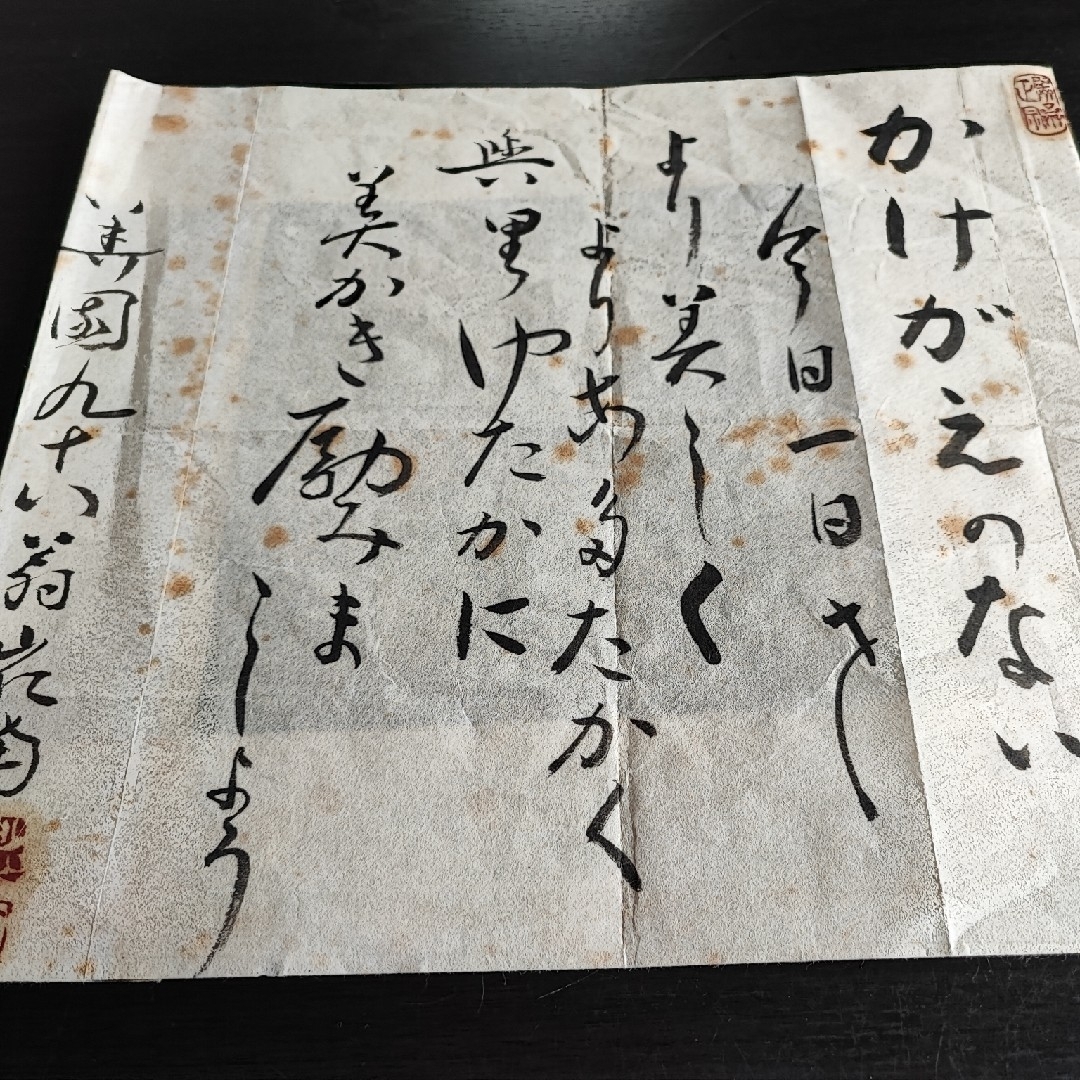 かけがえのない
今日一日を
より美しく
よりあ多たかく
與里ゆたかに
美かき励みま
しょう
九十八翁